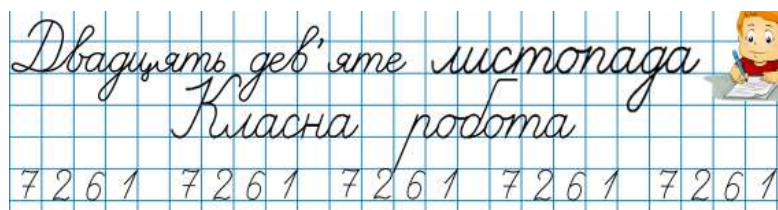 Двадцять дев'яте листопада
Класна робота
7 2 6 1 7 2 6 1 7 2 6 1 7 2 6 1 7 2 6 1